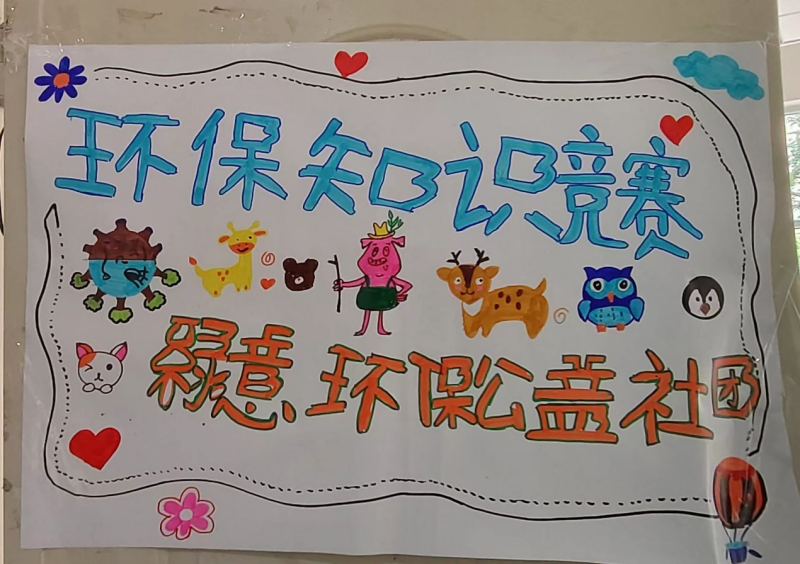 环保知识竞赛
绿意、环保公益社团